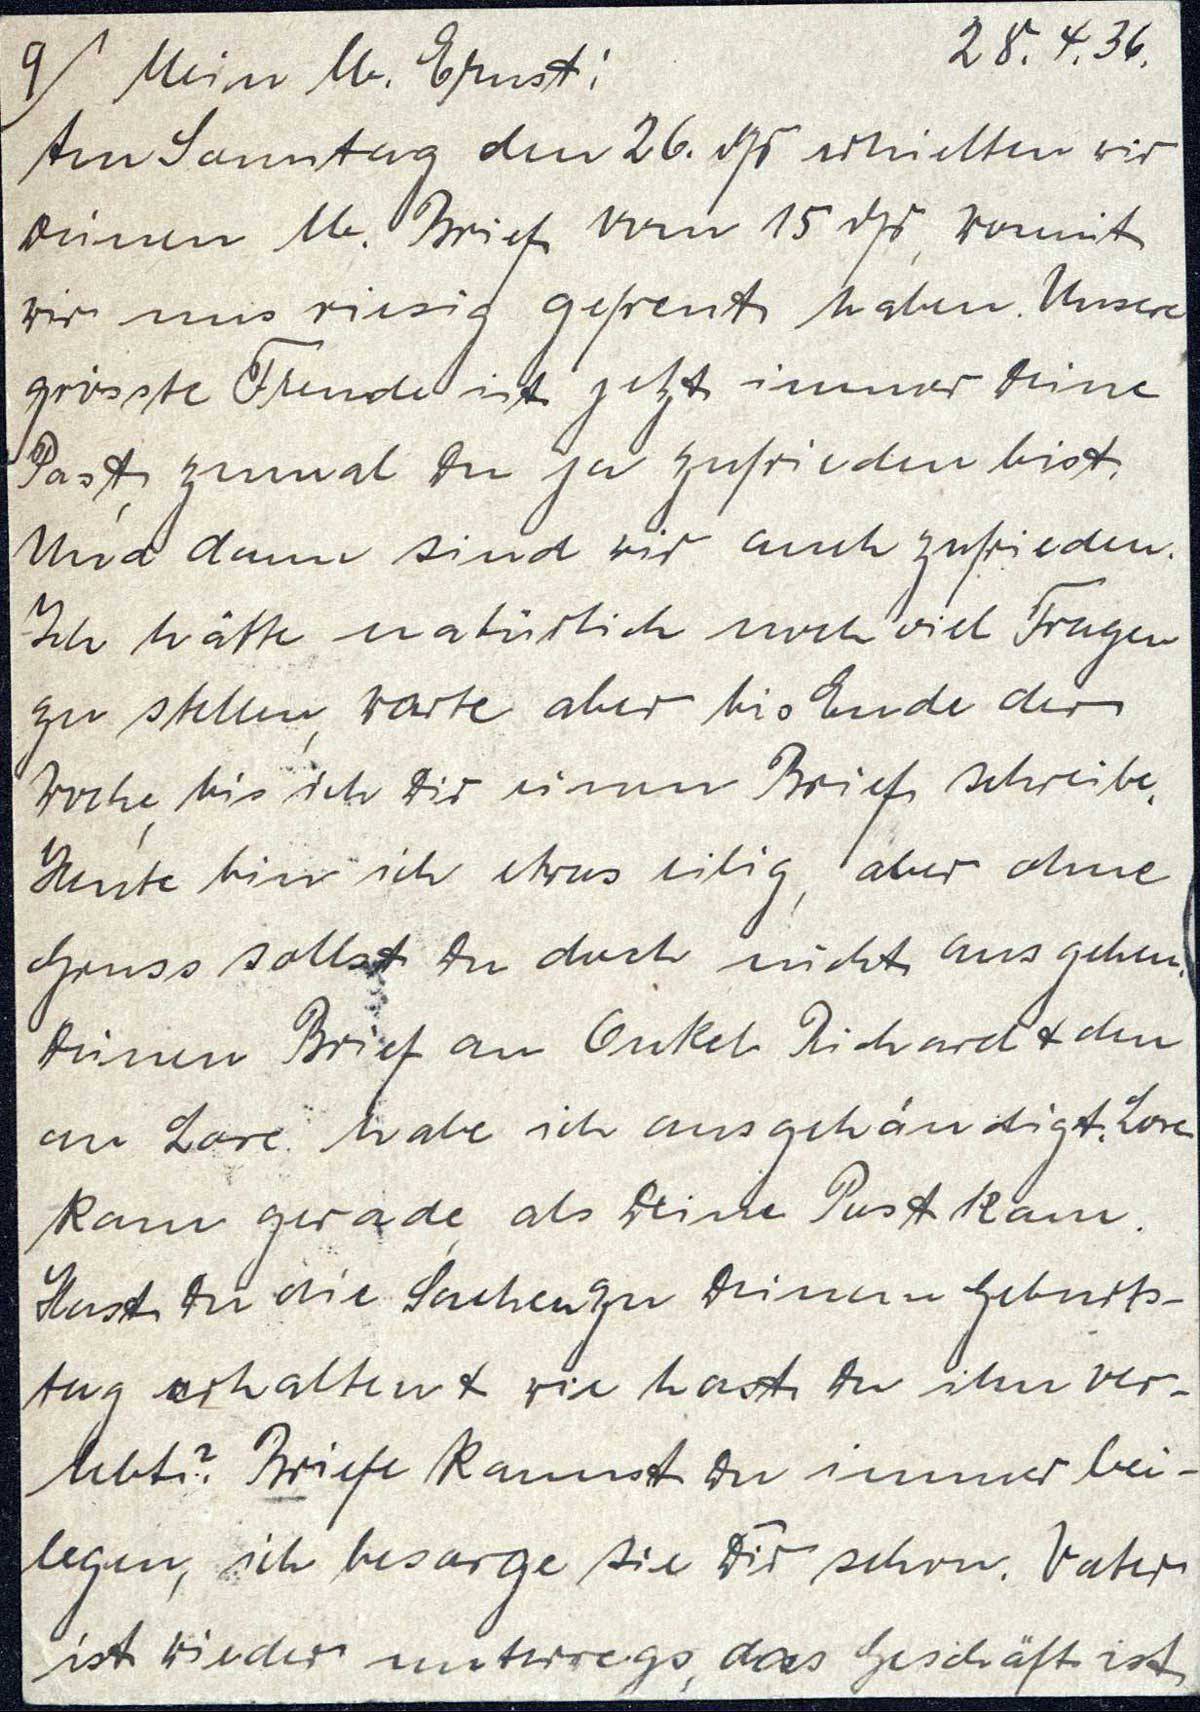 9/ Mein lb. Ernst!
28.4.36.
Am Sonntag den 26. dfs erhielten wir
Deinen lb. Brief vom 15 dfs, womit
wir uns riesig gefreut haben. Unsere
grösste Freude ist jetzt immer Deine
Post, zumal Du ja zufrieden bist.
Und dann sind wir auch zufrieden.
Ich hätte natürlich noch viel Fragen
zu stellen, warte aber bis Ende der
Woche, bis ich Dir einen Brief schreibe.
Heute bin ich etwas eilig, aber ohne
Gruss sollst Du doch nicht ausgehen.
Deinen Brief an Onkel Richard & den
an Lore habe ich ausgehändigt. Lore
kam gerade, als Deine Post kam.
Hast Du die Sachen zu Deinem Geburts-
tag erhalten & wie hast Du ihn ver-
lebt? Briefe kannst Du immer bei-
legen, ich besorge sie Dir schon. Vater
ist wieder unterwegs, das Geschäft ist